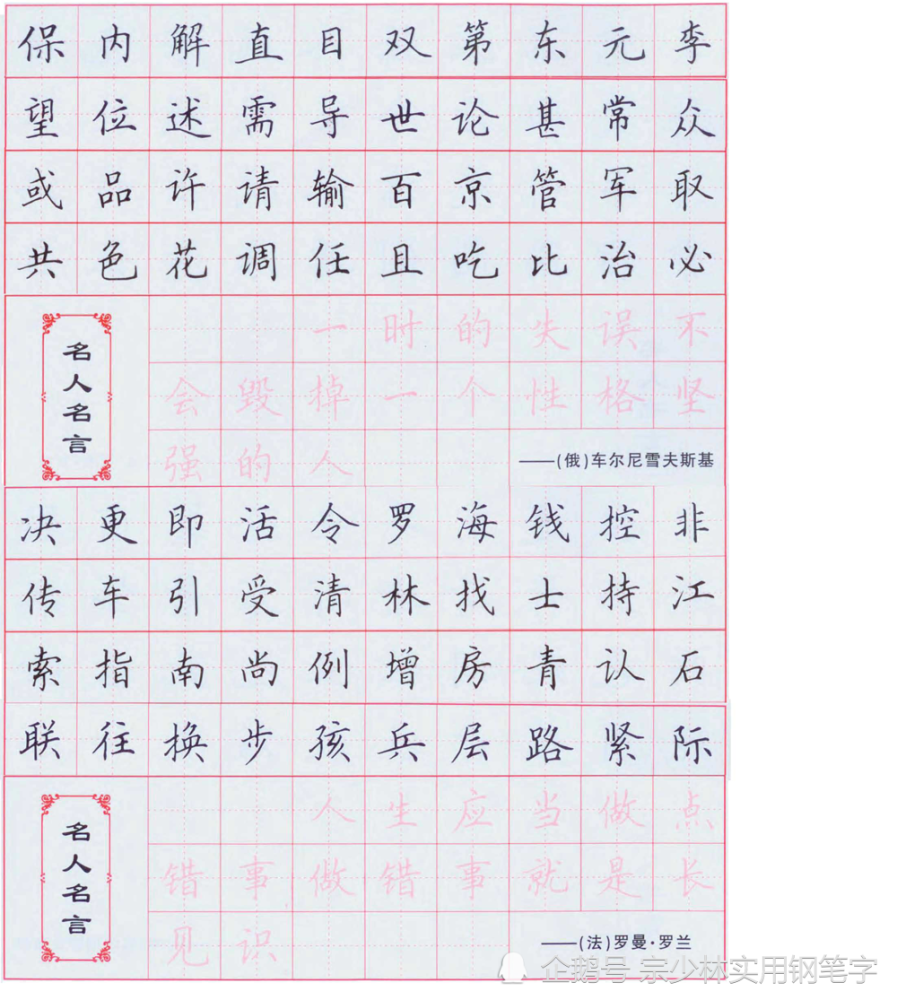 保内解直目双第东元李
望位述需导世论甚常众
或品许请输百京管军取
共色花调任且吃比治必
名人名言
一时的失误不
会毁掉一个性格坚
强的人
——(俄)车尔尼雪夫斯基
决更即活令罗海钱控非
传车引受清林找士持江
索指南尚例增房青认石
联往换步孩兵层路紧际
名人名言
人生应当做点
错事做错事就是长
见识
——(法)罗曼·罗兰
企鹅号 宗少林实用钢笔字